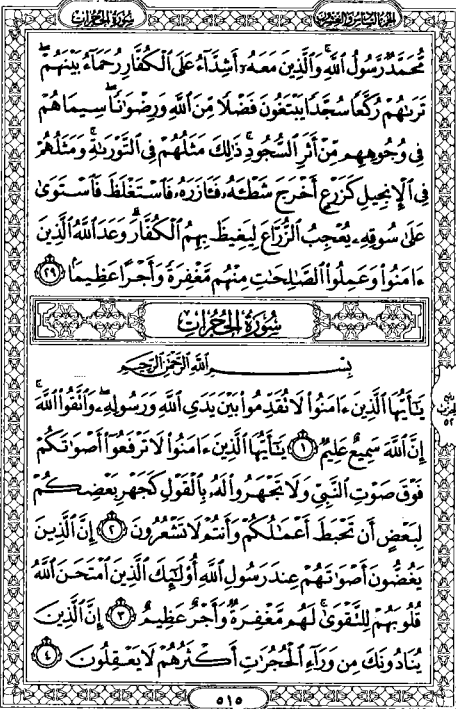 الجزء السادس والعشرون
سورة الحجرات
مُّحَمَّدٌ رَّسُولُ ٱللَّهِ ۚ وَٱلَّذِينَ مَعَهُۥٓ أَشِدَّآءُ عَلَى ٱلْكُفَّارِ رُحَمَآءُ بَيْنَهُمْ ۖ
تَرَىٰهُمْ رُكَّعًا سُجَّدًا يَبْتَغُونَ فَضْلًا مِّنَ ٱللَّهِ وَرِضْوَٰنًا ۖ سِيمَاهُمْ
فِى وُجُوهِهِم مِّنْ أَثَرِ ٱلسُّجُودِ ۚ ذَٰلِكَ مَثَلُهُمْ فِى ٱلتَّوْرَىٰةِ ۚ وَمَثَلُهُمْ
فِى ٱلْإِنجِيلِ كَزَرْعٍ أَخْرَجَ شَطْـَٔهُۥ فَـَٔازَرَهُۥ فَٱسْتَغْلَظَ فَٱسْتَوَىٰ
عَلَىٰ سُوقِهِۦ يُعْجِبُ ٱلزُّرَّاعَ لِيَغِيظَ بِهِمُ ٱلْكُفَّارَ ۗ وَعَدَ ٱللَّهُ ٱلَّذِينَ
ءَامَنُوا۟ وَعَمِلُوا۟ ٱلصَّٰلِحَٰتِ مِنْهُم مَّغْفِرَةً وَأَجْرًا عَظِيمًۢا ٢٩
سُورَةُ الْحُجُرَاتِ
بِسْمِ ٱللَّهِ ٱلرَّحْمَٰنِ ٱلرَّحِيمِ
يَٰٓأَيُّهَا ٱلَّذِينَ ءَامَنُوا۟ لَا تُقَدِّمُوا۟ بَيْنَ يَدَىِ ٱللَّهِ وَرَسُولِهِۦ ۖ وَٱتَّقُوا۟ ٱللَّهَ ۚ
إِنَّ ٱللَّهَ سَمِيعٌ عَلِيمٌ ١ يَٰٓأَيُّهَا ٱلَّذِينَ ءَامَنُوا۟ لَا تَرْفَعُوٓا۟ أَصْوَٰتَكُمْ
فَوْقَ صَوْتِ ٱلنَّبِىِّ وَلَا تَجْهَرُوا۟ لَهُۥ بِٱلْقَوْلِ كَجَهْرِ بَعْضِكُمْ
لِبَعْضٍ أَن تَحْبَطَ أَعْمَٰلُكُمْ وَأَنتُمْ لَا تَشْعُرُونَ ٢ إِنَّ ٱلَّذِينَ
يَغُضُّونَ أَصْوَٰتَهُمْ عِندَ رَسُولِ ٱللَّهِ أُو۟لَٰٓئِكَ ٱلَّذِينَ ٱمْتَحَنَ ٱللَّهُ
قُلُوبَهُمْ لِلتَّقْوَىٰ ۚ لَهُم مَّغْفِرَةٌ وَأَجْرٌ عَظِيمٌ ٣ إِنَّ ٱلَّذِينَ
يُنَادُونَكَ مِن وَرَآءِ ٱلْحُجُرَٰتِ أَكْثَرُهُمْ لَا يَعْقِلُونَ ٤
٥١٥